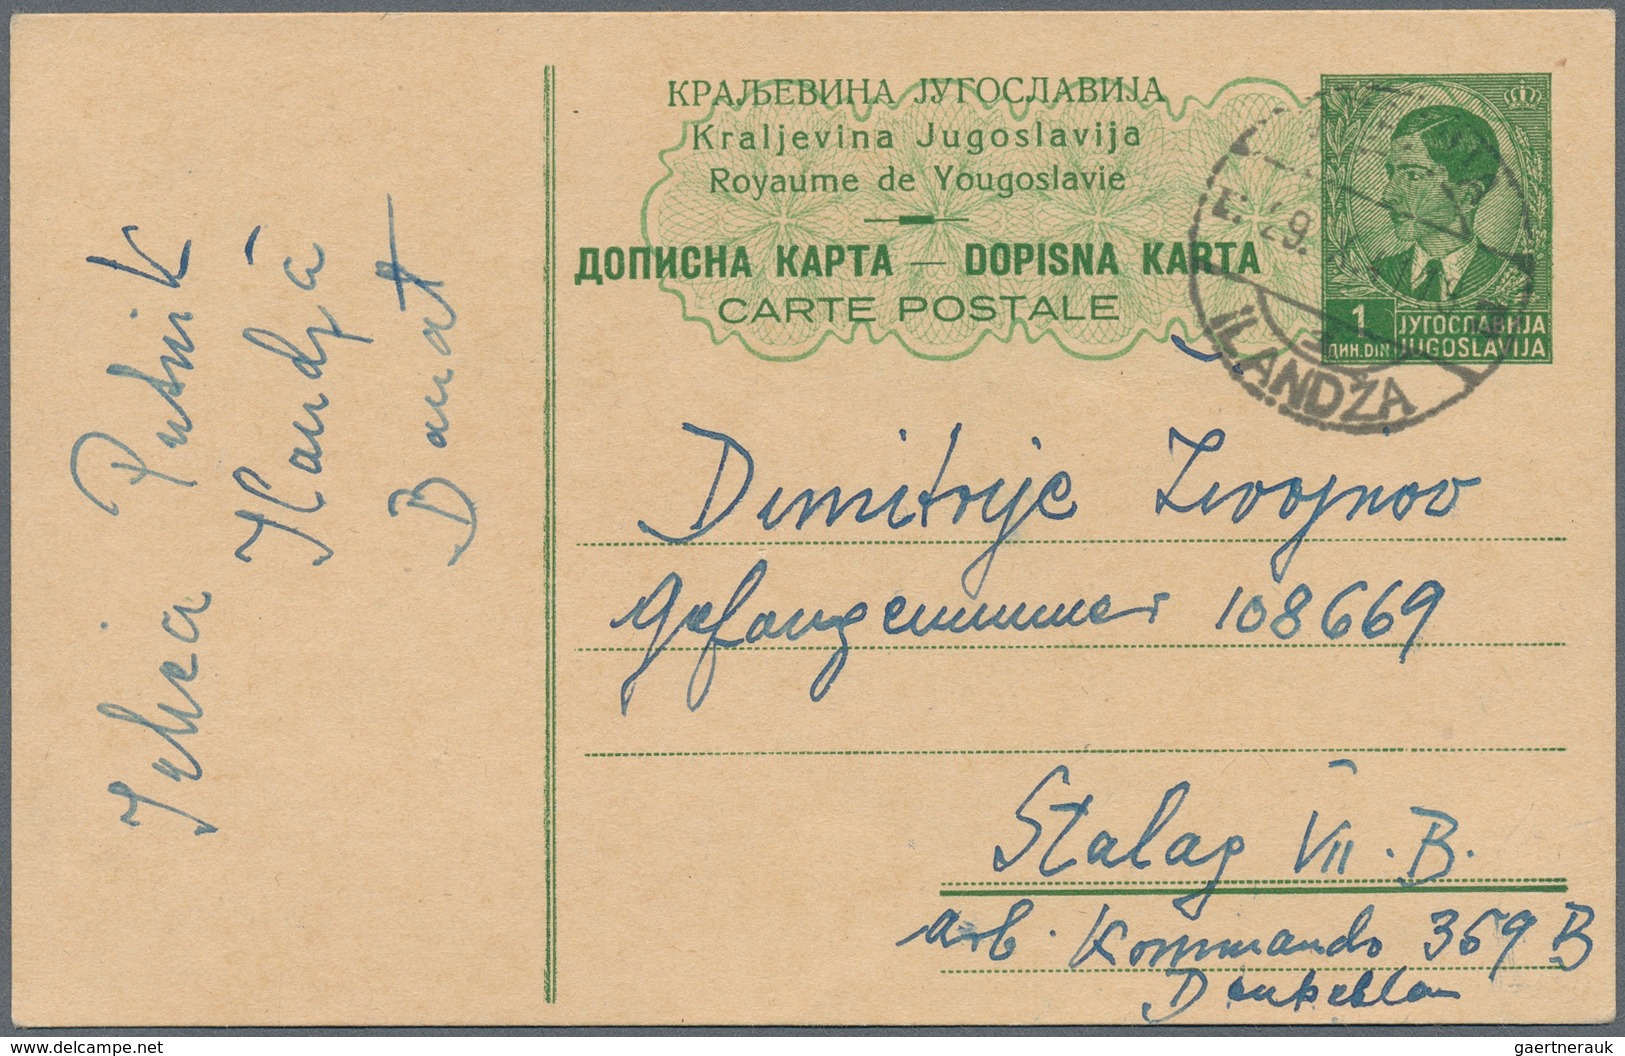 КРАЉЕВИНА ЈУГОСЛАВИЈА
Kraljevina Jugoslavija
Royaume de Yougoslavie
ДОПИСНА КАРТА — DOPISNA KARTA
CARTE POSTALE
1
ДИН. DIN
ЈУГОСЛАВИЈА
JUGOSLAVIJA
29.
ILANDŽA
Putnik
Ilandžá
Banat
Dimitrije Zivojnov
Gefangenummer 108669
Stalag VII. B.
arb. Kommando 369 B
delcampe.net
gaertnerauk